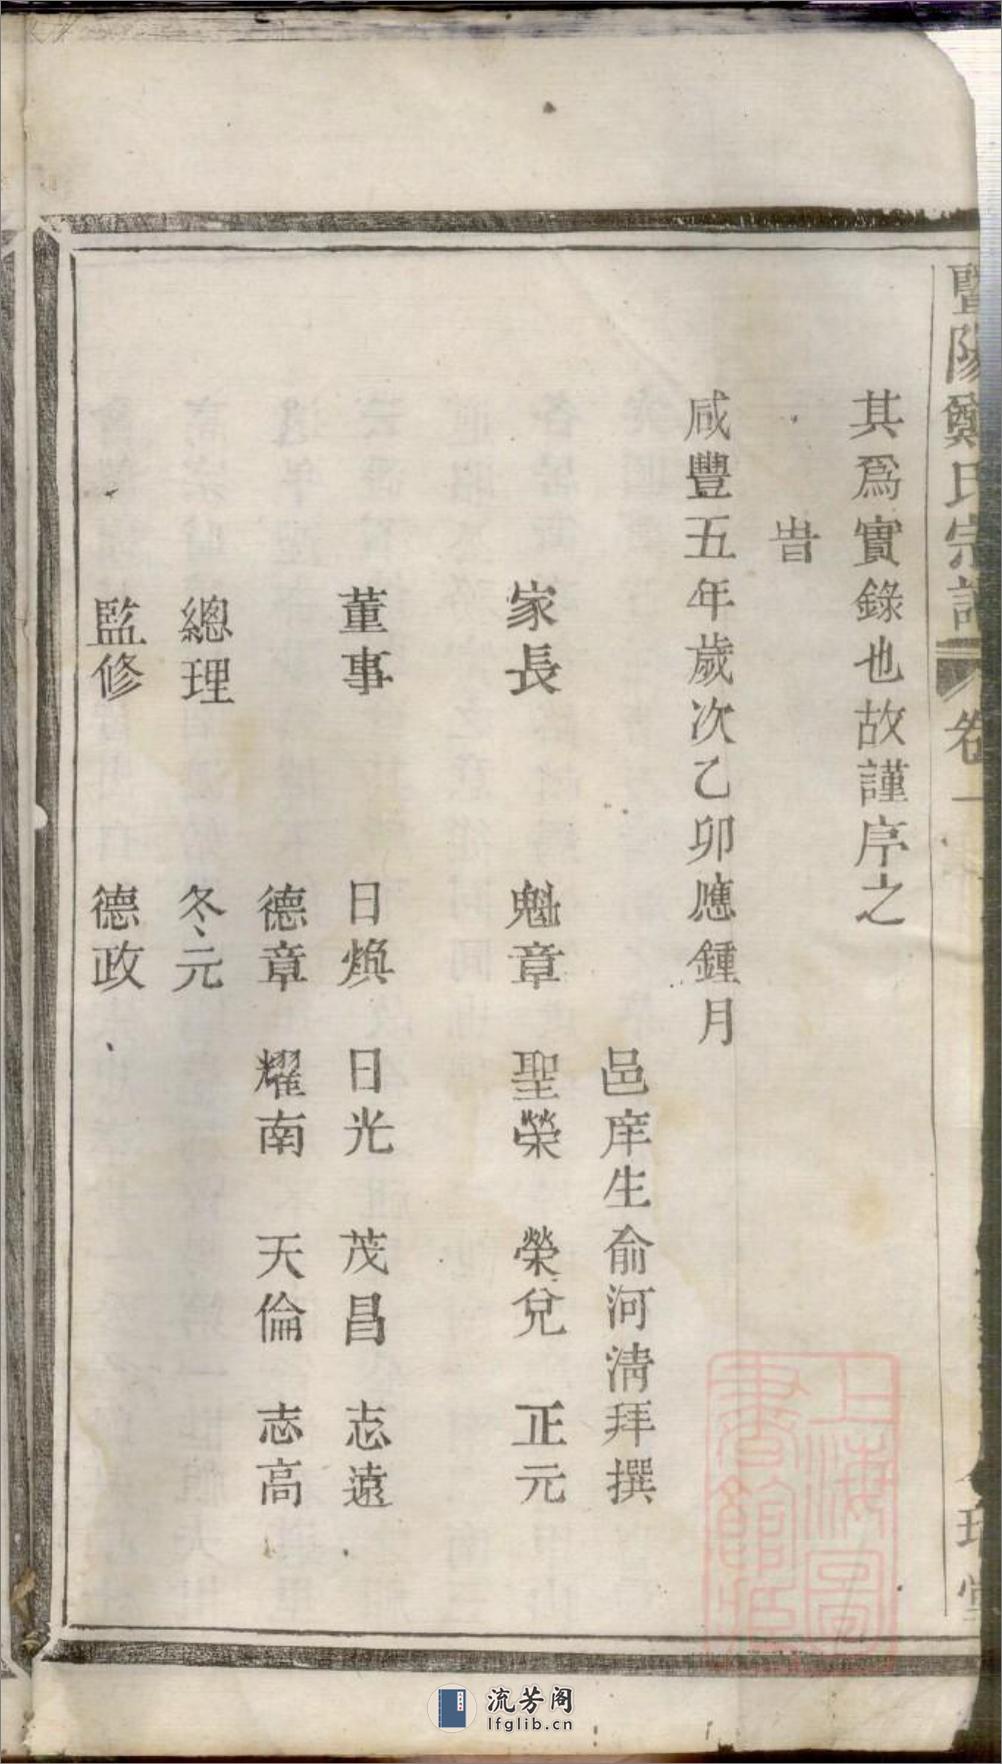 暨陽鄭氏宗譜
卷一
其爲實錄也故謹序之
旹
咸豐五年歲次乙卯應鍾月
邑庠生俞河淸拜撰
家長 魁章 聖榮 榮兌 正元
董事 日煥 日光 茂昌 志遠
德章 耀南 天倫 志高
總理 冬元
監修 德政
上海圖書館藏
流芳阁
lfglib.cn